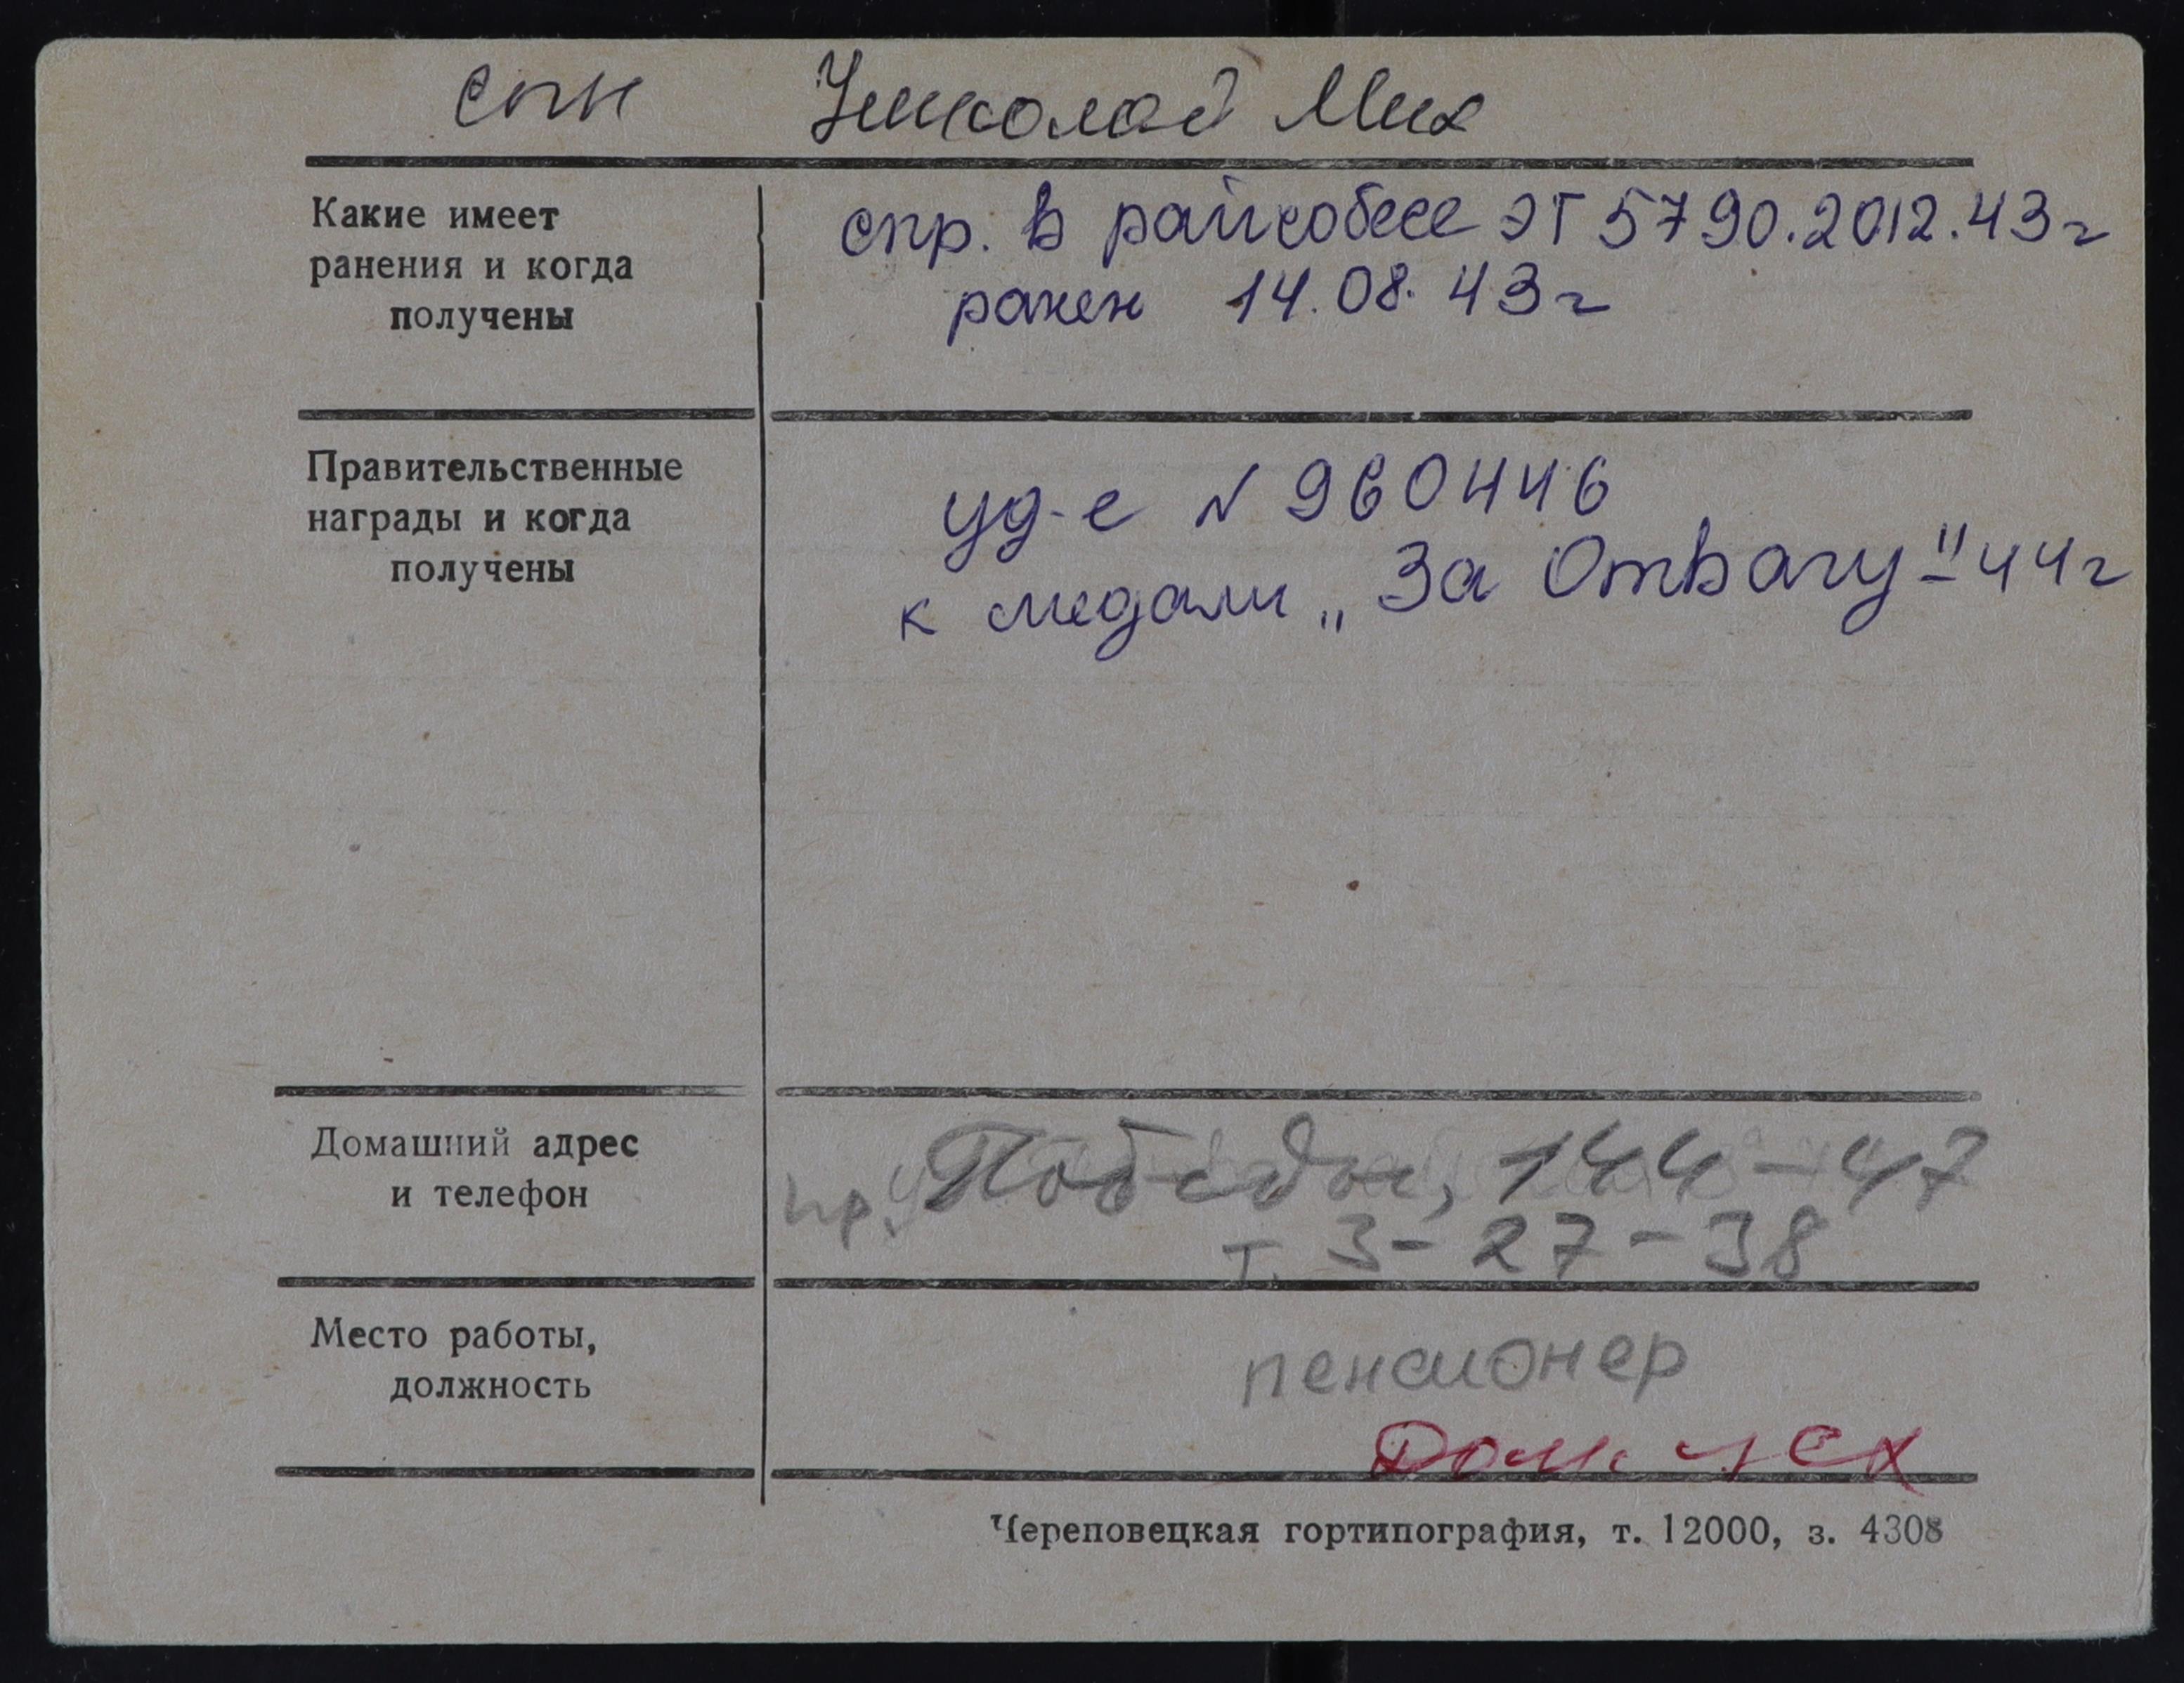 сын Николай Мих
Какие имеет
ранения и когда
получены
спр. в райсобесе ЭГ 5790.2012.43г
ранен 14.08.43г
Правительственные
награды и когда
получены
уд-е N 960446
к медали „За Отвагу"-44г
Домашний адрес
и телефон
пр. Победы, 144-47
т. 3-27-38
Место работы,
должность
пенсионер
Череповецкая гортипография, т. 12000, з. 4308